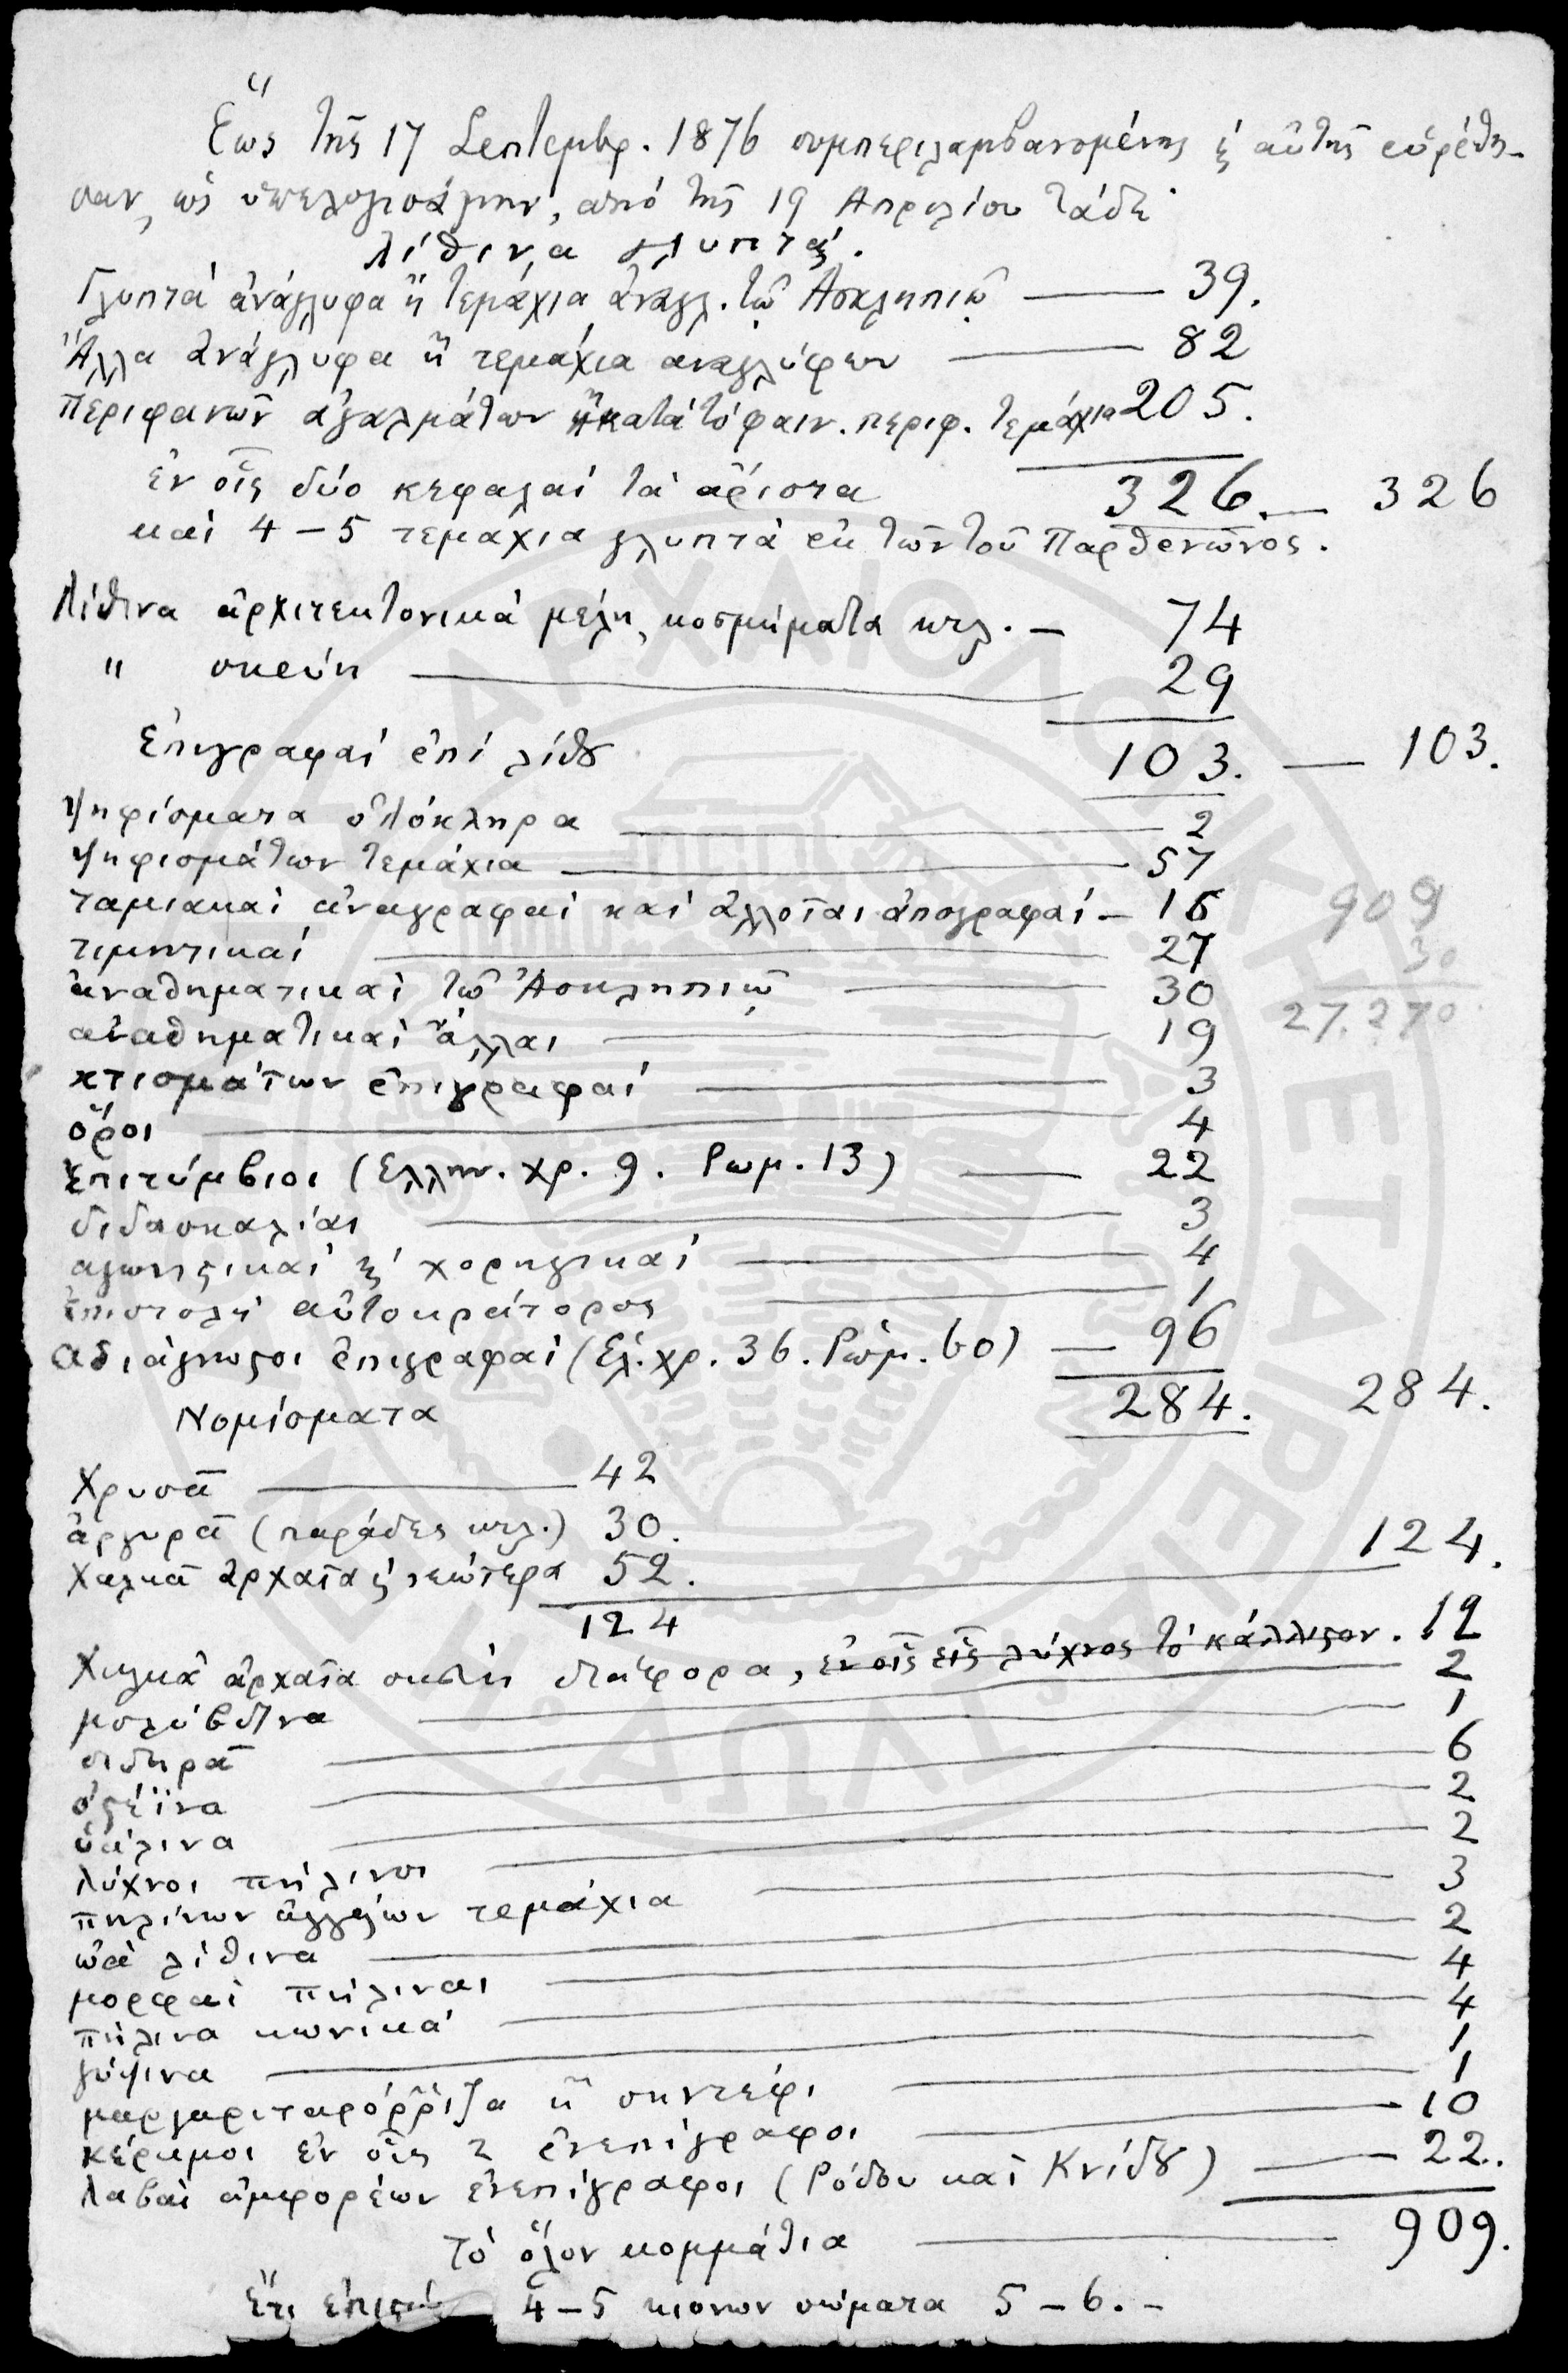 Ἕως τῆς 17 Σεπτεμβρ. 1876 συμπεριλαμβανομένης ϗ αὐτῆς εὑρέθη-
σαν, ὡς ὑπελογισάμην, ἀπὸ τῆς 19 Ἀπριλίου τάδε·
λίθινα γλυπτά.
Γλυπτὰ ἀνάγλυφα ἢ τεμάχια ἀναγλ. τῷ Ἀσκληπιῷ — 39.
Ἄλλα ἀνάγλυφα ἢ τεμάχια ἀναγλύφων — 82
Περιφανῶν ἀγαλμάτων ἢ κατὰ τὸ φαιν. περιφ. τεμάχια 205.
ἐν οἷς δύο κεφαλαὶ τὰ ἄριστα 326. — 326
καὶ 4 – 5 τεμάχια γλυπτὰ ἐκ τῶν τοῦ Παρθενῶνος.
Λίθινα ἀρχιτεκτονικὰ μέλη, κοσμήματα κτλ. — 74
" σκεύη — 29
Ἐπιγραφαὶ ἐπὶ λίθȣ 103. — 103.
Ψηφίσματα ὁλόκληρα — 2
Ψηφισμάτων τεμάχια — 57
ταμιακαὶ ἀναγραφαὶ καὶ ἀλλοῖαι ἀπογραφαί — 16
τιμητικαί — 27
ἀναθηματικαὶ τῷ Ἀσκληπιῷ — 30
ἀναθηματικαὶ ἄλλαι — 19
κτισμάτων ἐπιγραφαί — 3
ὅροι — 4
ἐπιτύμβιοι (Ἑλλην. χρ. 9. Ῥωμ. 13) — 22
διδασκαλίαι — 3
ἀγωνιϛικαὶ ϗ χορηγικαί — 4
ἐπιστολὴ αὐτοκράτορος — 1
ἀδιάγνωϛοι ἐπιγραφαὶ (Ἑλ. χρ. 36. Ῥωμ. 60) — 96
284. 284.
Νομίσματα
Χρυσᾶ — 42
ἀργυρᾶ (παράδες κτλ.) 30.
χαλκᾶ ἀρχαῖα ϗ νεώτερα 52. — 124.
124
Χαλκᾶ ἀρχαῖα σκεύη διάφορα, ἐν οἷς εἷς λύχνος τὸ κάλλιϛον. 12
μολύβδινα — 2
σιδηρᾶ — 1
ὀϛέϊνα — 6
ὑάλινα — 2
λύχνοι πήλινοι — 2
πηλίνων ἀγγείων τεμάχια — 3
ὠὰ λίθινα — 2
μορφαὶ πήλιναι — 4
πήλινα κωνικά — 4
γύψινα — 1
μαργαριταρόῤῥιζα ἢ σηντέφι — 1
κέραμοι ἐν οἷς 2 ἐνεπίγραφοι — 10
λαβαὶ ἀμφορέων ἐνεπίγραφοι (Ῥόδου καὶ Κνίδȣ) — 22.
τὸ ὅλον κομμάτια — 909.
Ἔτι 4 – 5 κιόνων σώματα 5 – 6. –
909
30
27.270
ΑΡΧΑΙΟΛΟΓΙΚΗ ΕΤΑΙΡΕΙΑ